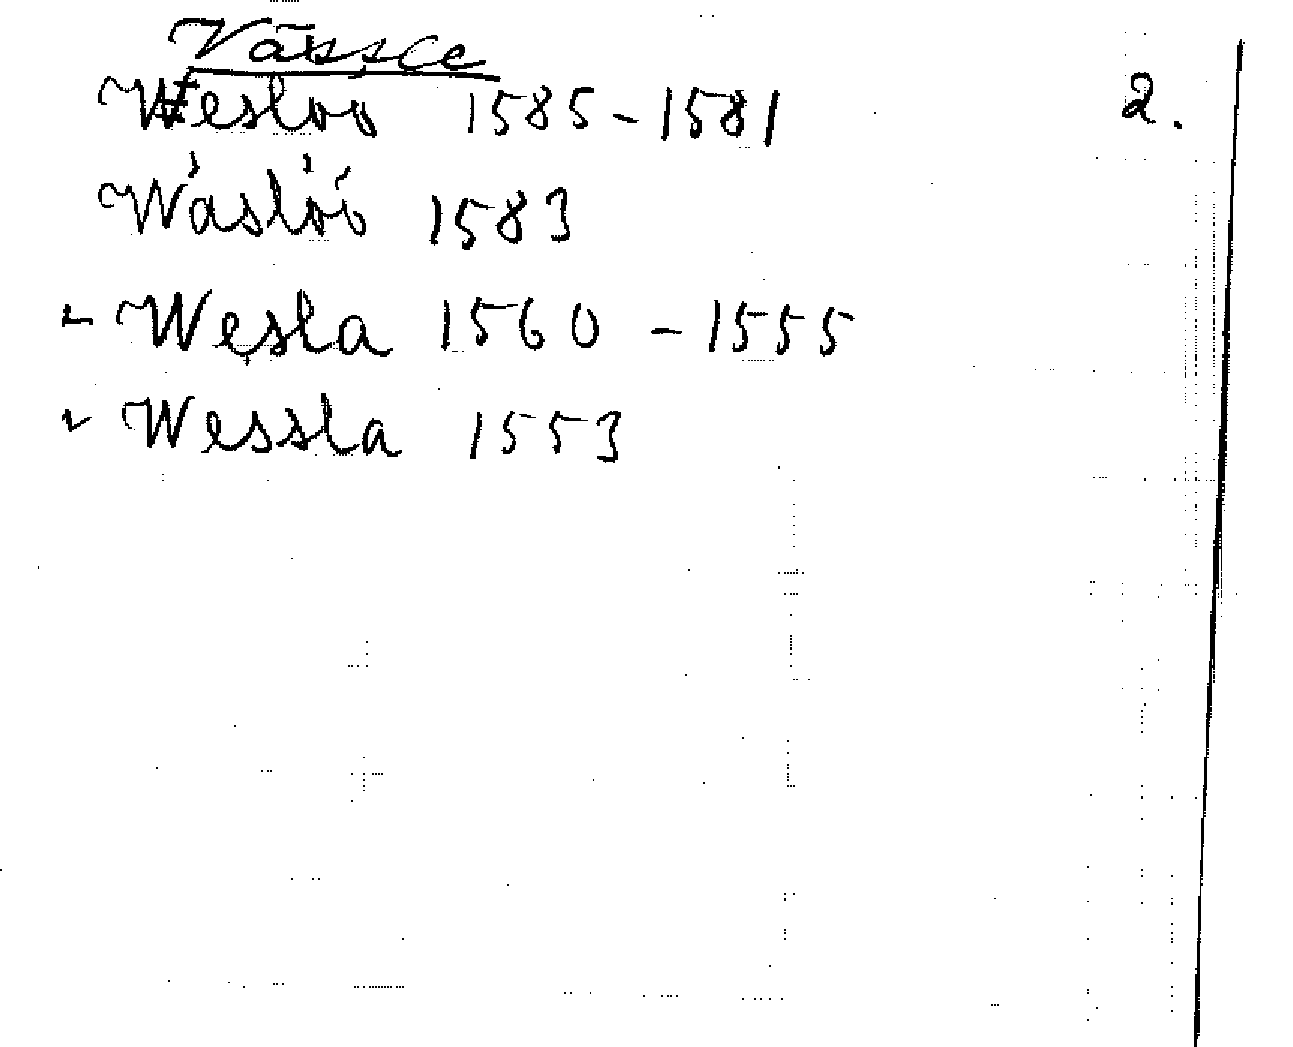 Vässle
Weslöö 1585-1581 2.
Wáslóó 1583
Wesla 1560 - 1555
Wessla 1553